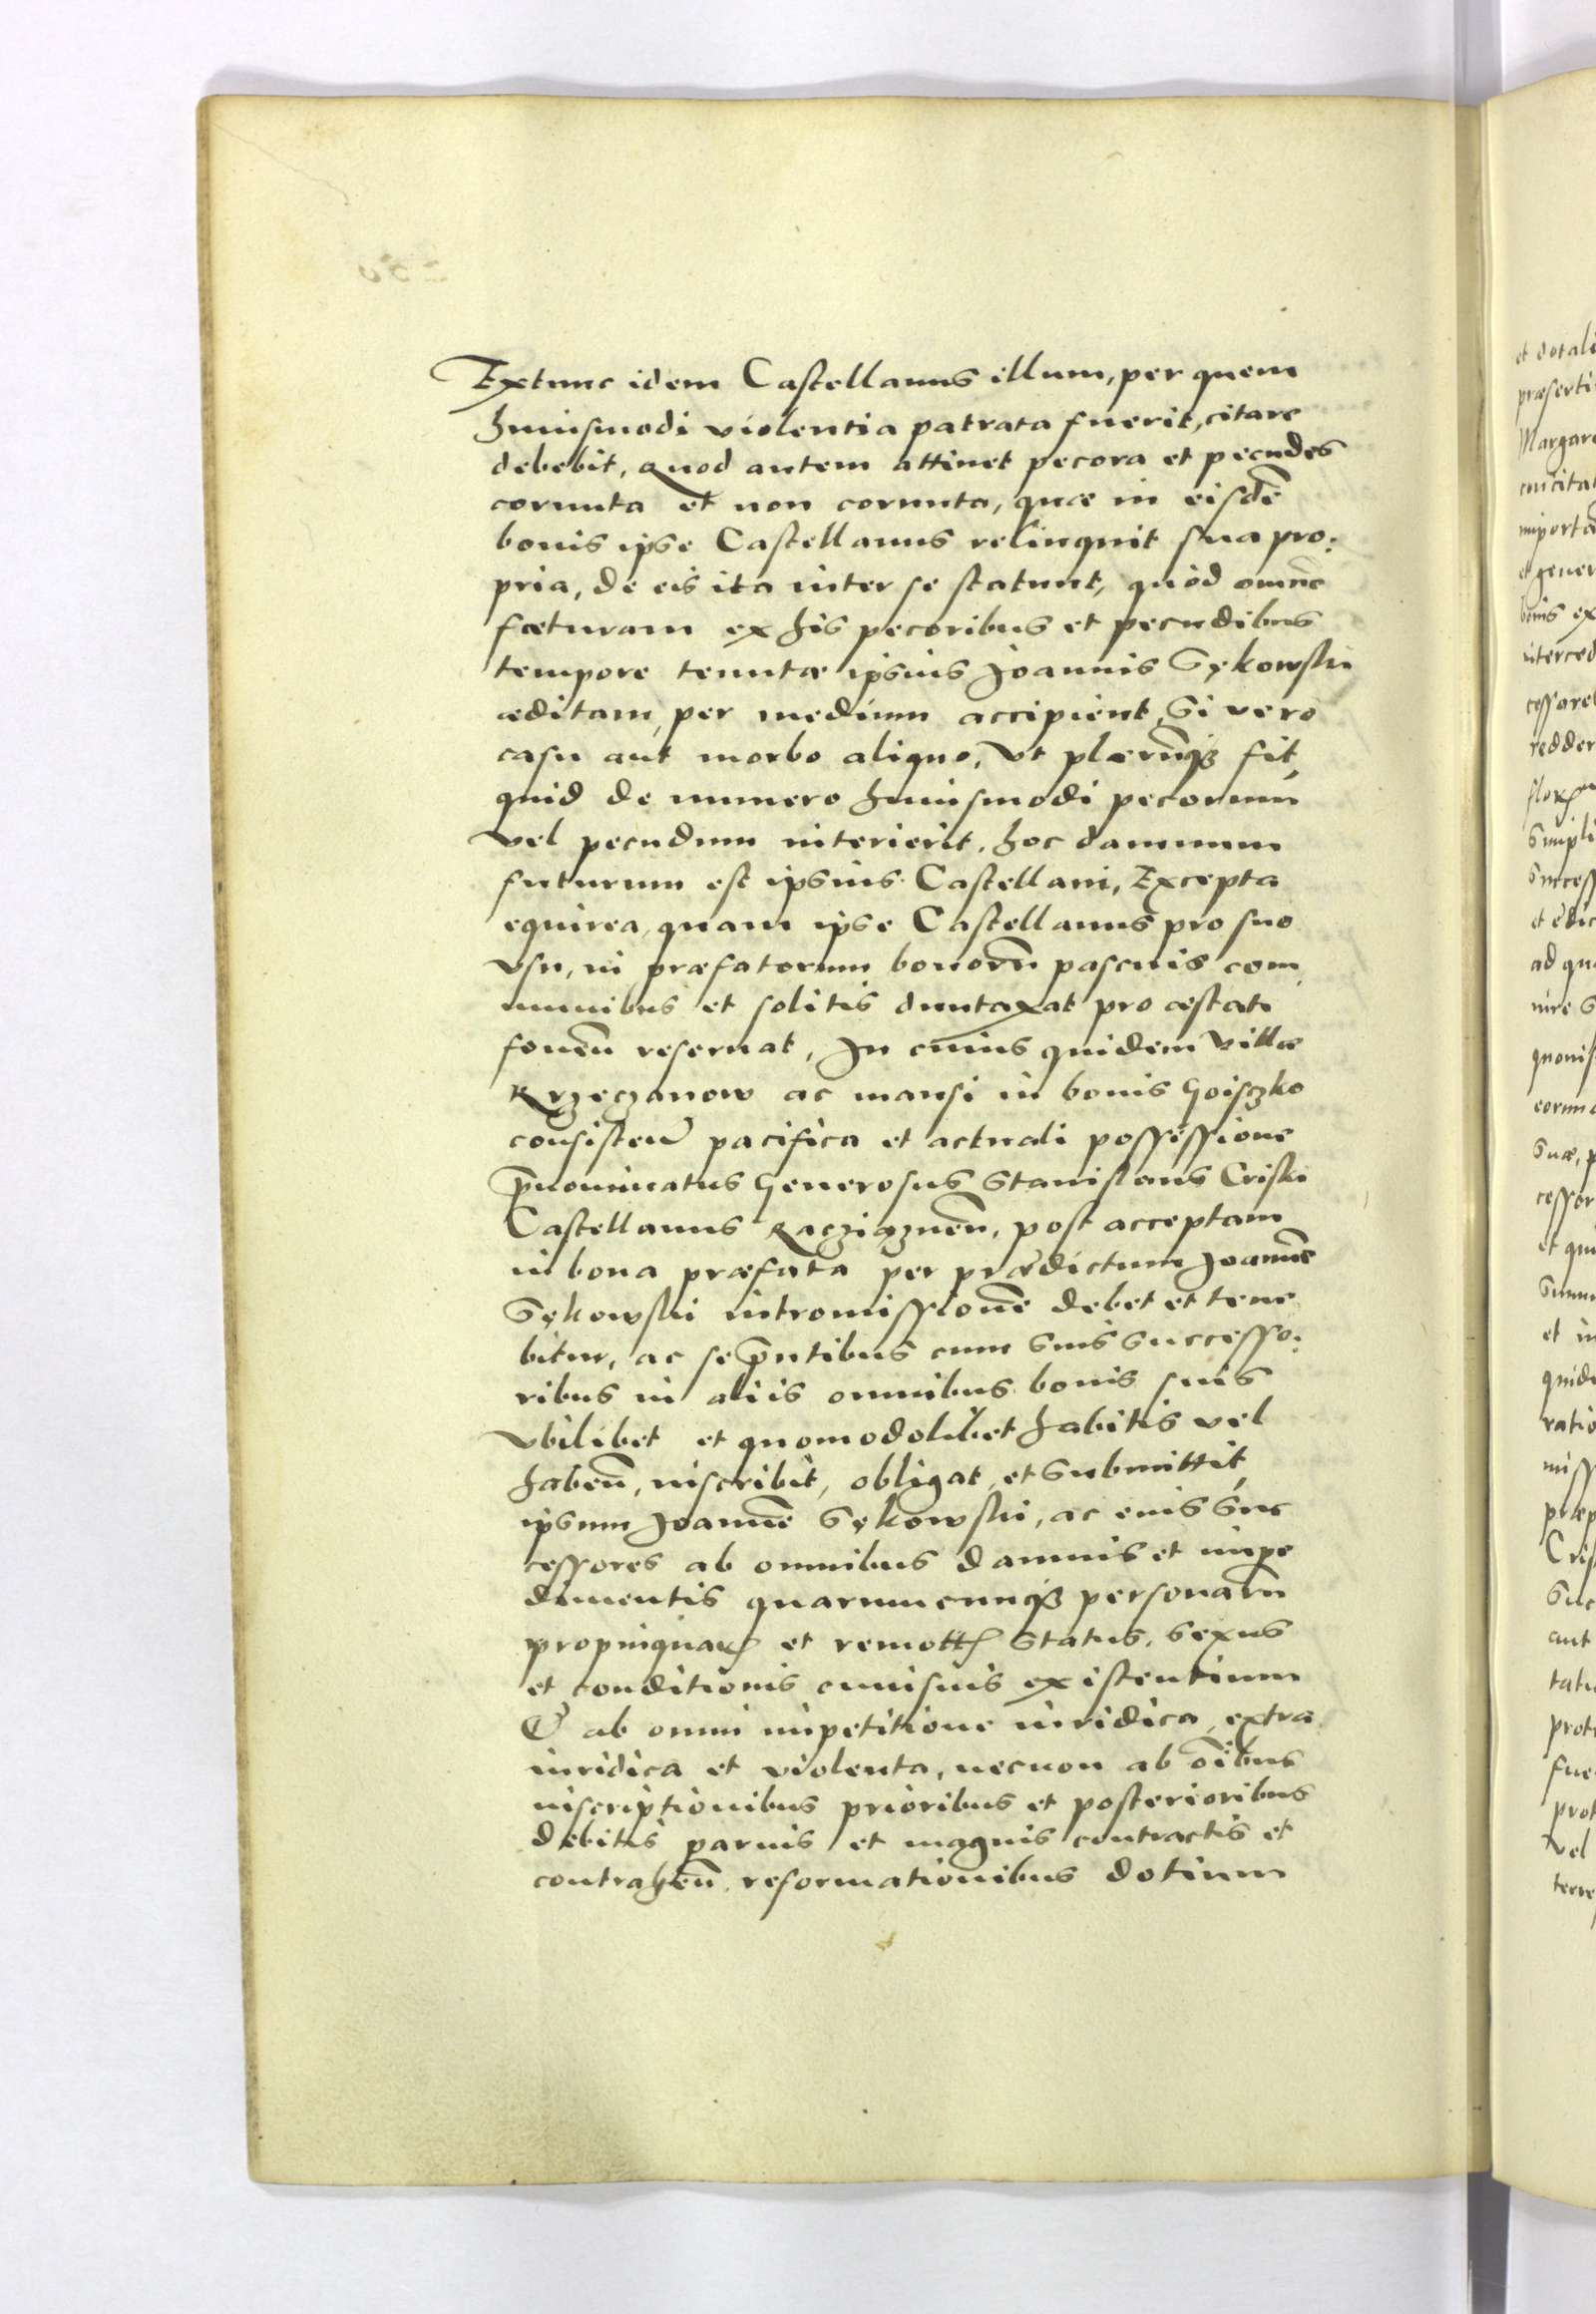 Extunc idem Castellanus illum, per quem
huiusmodi violentia patrata fuerit, citare
debebit, Quod autem attinet pecora et pecudes
cornuta et non cornuta, quæ in eisdē
bonis ipse Castellanus relinquit sua pro:
pria, de eis ita inter se statuunt, quòd omnē
fœturam ex his pecoribus et pecudibus
tempore tenutæ ipsius Joannis Sękowski
æditam, per medium accipient, Si vero
casu aut morbo aliquo, vt plærūqꝫ fit,
quid de numero huiusmodi pecorum
vel pecudum interierit, hoc damnum
futurum est ipsius Castellani, Excepta
equirea, quam ipse Castellanus pro suo
vsu, in præfatorum bonorū pascuis com
munibus et solitis duntaxat pro æstate
fouēn reseruat, In cuius quidem villæ
Krzęczanow ac mansi in bonis Goisczko
consisteñ pacifica et actuali possessione
p̄nominatus Generosus Stanislaus Criski
Castellanus Racziązneń, post acceptam
in bona præfata per prædictum Joannē
Sękowski intromissionē debet et tene
bitur, ac se p̄ntibus cum suis successo:
ribus in aliis omnibus bonis suis
vbilibet et quomodolibet habitis vel
habeñ, inscribit, obligat, et submittit,
ipsum Joannē Sękowski, ac eius suc
cessores ab omnibus damnis et impe
dimentis quarumcunqꝫ personarū
propinquaꝝ et remotaꝝ status, sexus
et conditionis cuiusuis existentium
Et ab omni impetitione iuridica, extra
iuridica et violenta, necnon ab oībus
inscriptionibus prioribus et posterioribus
debitis paruis et magnis contractis et
contraheñ, reformationibus dotium
et dotali
præserti
Margar
concitat
importa
et gener
bonis ex
interced
cessore
redder
floꝝ
simpli
success
et
ad qu
iure s
quouis
eorum
suæ, p
cessor
et qu
summ
et in
quid
ratio
miss
præp
Cris
suc
aut
tatu
prot
fue
prot
vel
terre